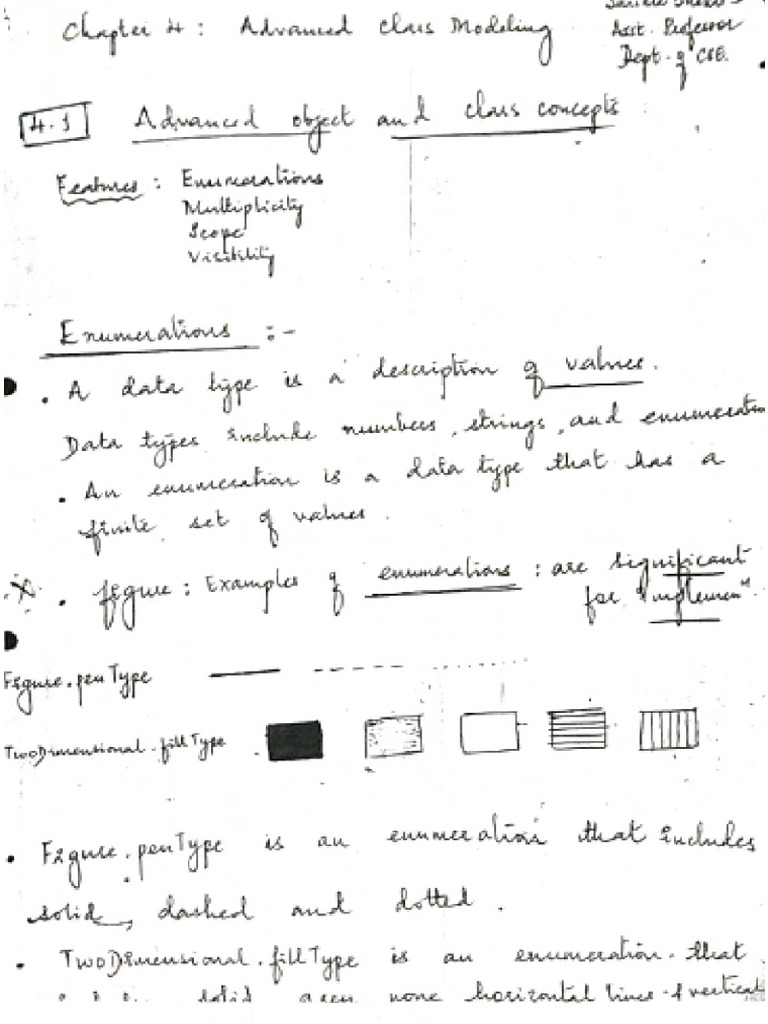 Chapter 4: Advanced Class Modeling
Asst. Professor
Dept. of CSE.
4.1 Advanced object and class concepts
Features : Enumerations
Multiplicity
Scope
Visibility
Enumerations :-
• A data type is a description of values.
Data types include numbers, strings, and
• An enumeration is a data type that has a
finite set of values.
• figure : Examples of enumerations : are significant
for "implemen"
Figure.penType
TwoDimensional.fillType
• Figure.penType is an enumeration that includes
solid, dashed and dotted.
• TwoDimensional.fillType is an enumeration that
solid none horizontal lines & vertical